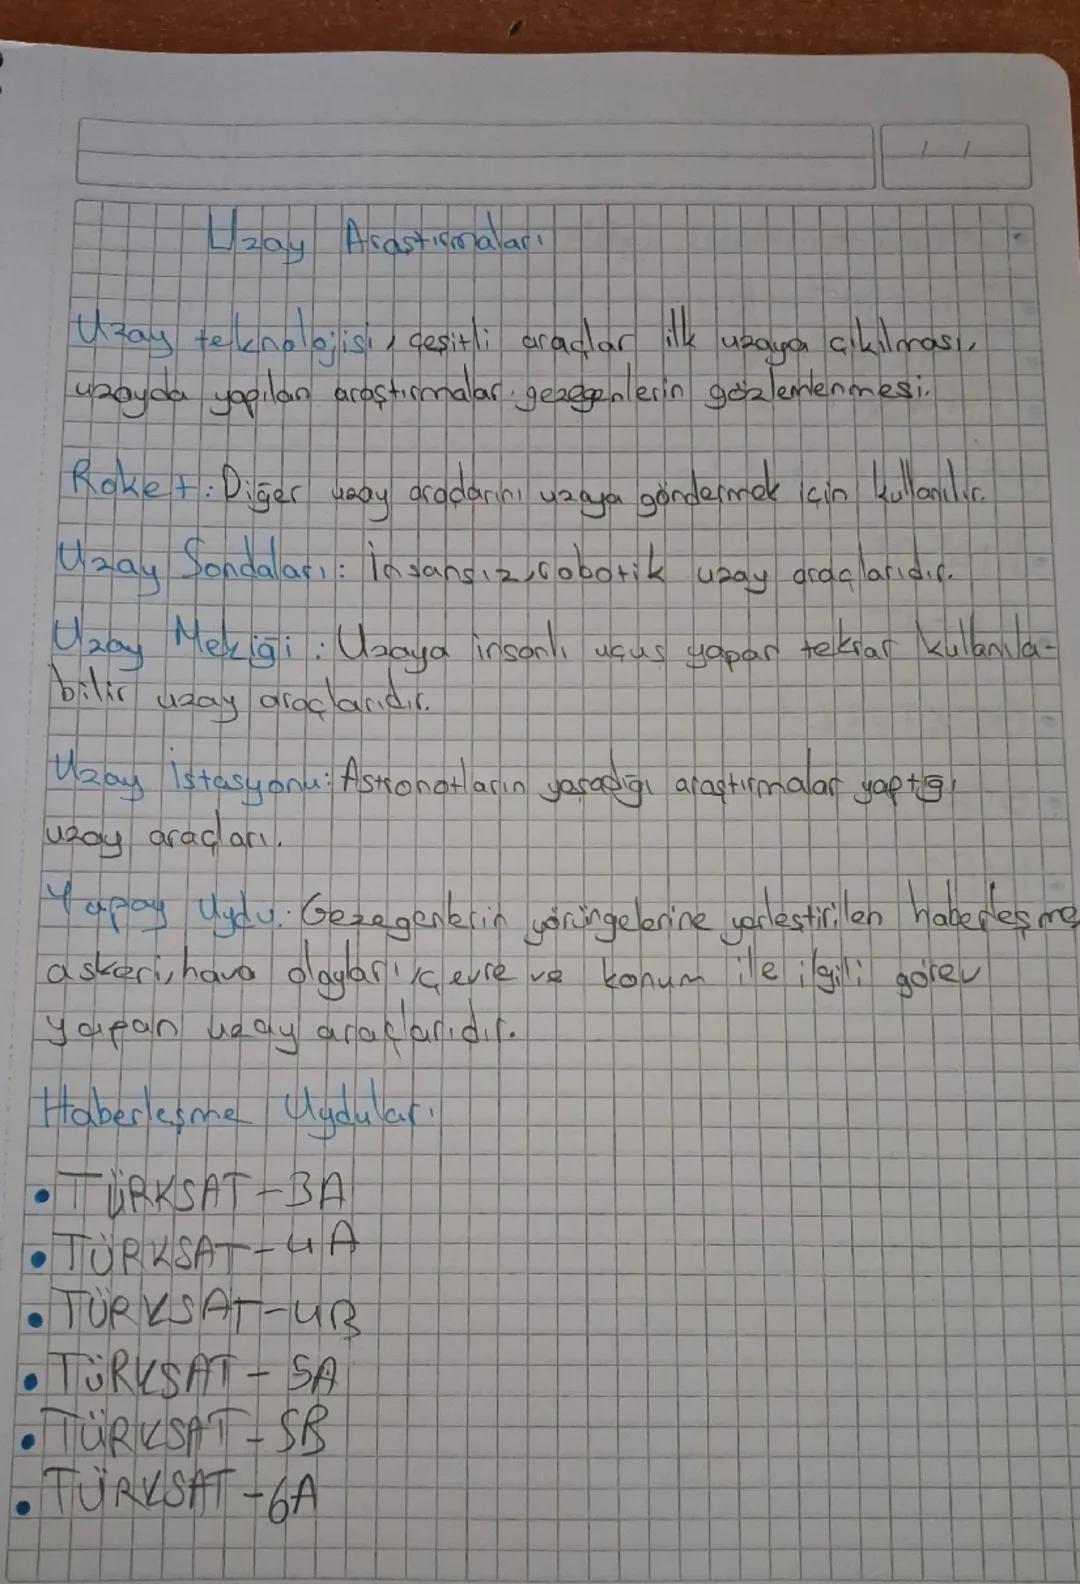 Uzay Araştırmaları
Uzay teknolojisi, çeşitli araçlar ilk uzaya çıkılması,
uzayda yapılan araştırmalar, gezegenlerin gözlemlenmesi.
Roket: Diğer uzay araçlarını uzaya göndermek için kullanılır.
Uzay Sondaları: İnsansız, robotik uzay araçlarıdır.
Uzay Mekiği: Uzaya insanlı uçuş yapan tekrar kullanıla-
bilir uzay araçlarıdır.
Uzay İstasyonu: Astronotların yaşadığı araştırmalar yaptığı
uzay araçları.
Yapay Uydu: Gezegenlerin yörüngelerine yerleştirilen haberleşme
askeri, hava olayları, çevre ve konum ile ilgili görev
yapan uzay araçlarıdır.
Haberleşme Uyduları
• TÜRKSAT-3A
• TÜRKSAT-4A
• TÜRKSAT-4B
• TÜRKSAT-5A
• TÜRKSAT-5B
• TÜRKSAT-6A